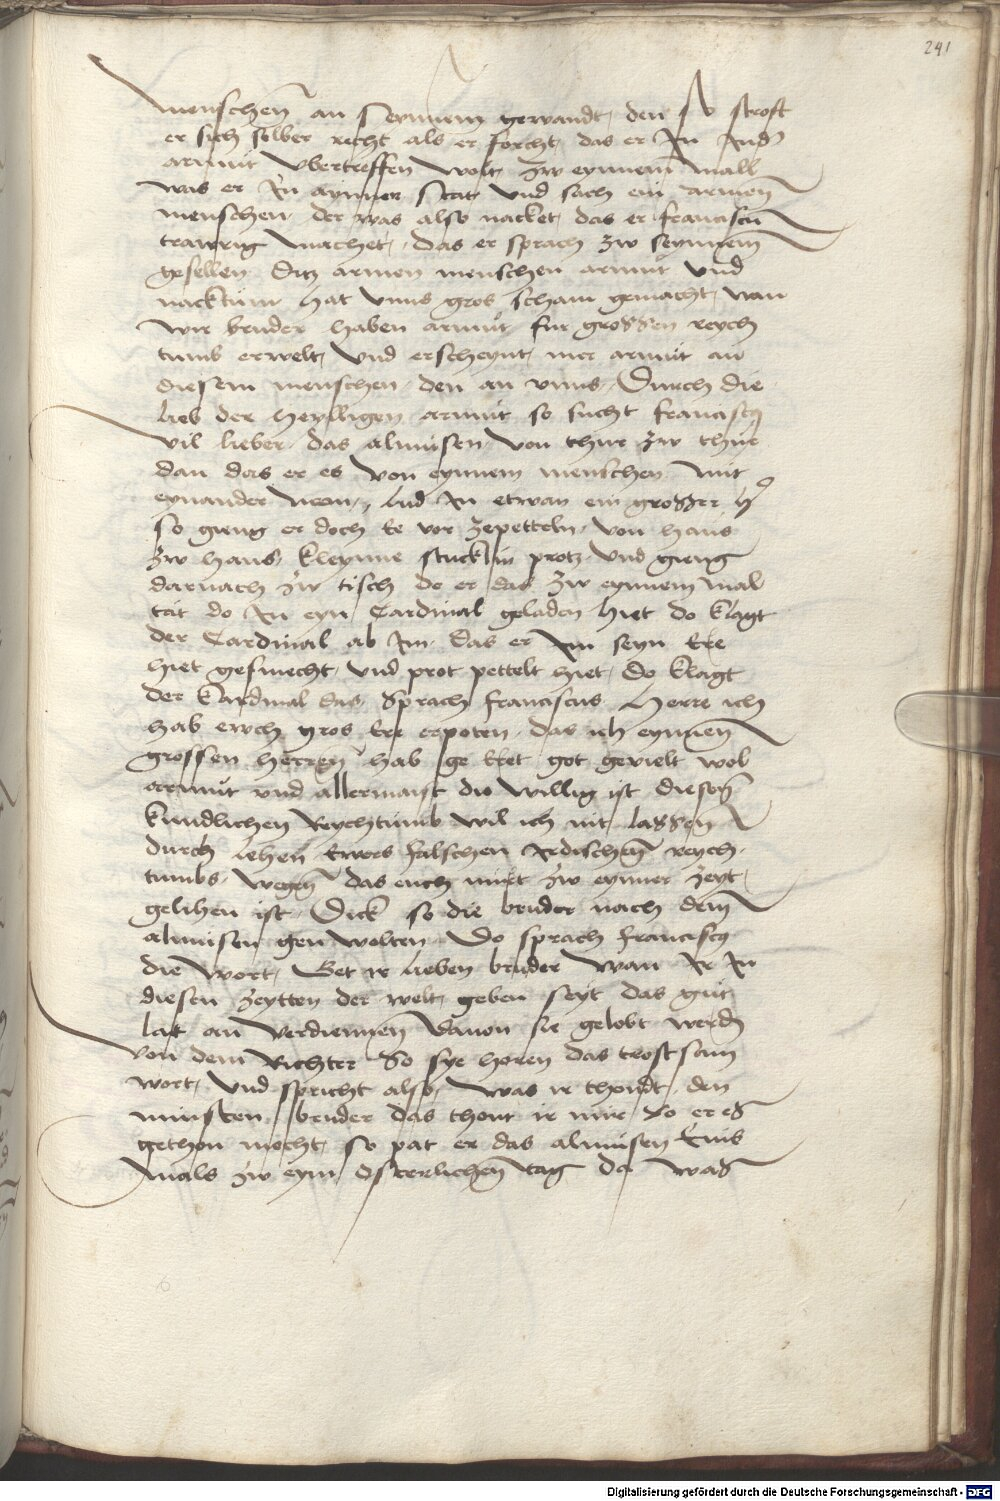 241
menschen an Seynnem gewandt, den so stroft
er sich selber recht als er forcht, das er Jn Jnd
armut vbertreffen wolt, zw eynnem mall
was er Jn aynner stat Vnd sach ein armen
menschen der was also nacket, das er franciscu
trawrig machet, das er sprach zw seynnem
gesellen ditz armen menschen armut Vnd
nacktum hat vnns gros scham gemacht, wan
wir bruder haben armut fur grossen reych
tumb erwelt, Vnd erscheynt, mer armut an
diesem menschen, den an vnns, Durch die
lieb der heylligen armut so sucht franciscus
vil lieber das almusen, von thur zw thur
dan das er es von eynnem menschen mit
eynander nem, lud Jn etwan ein grosser h
so gieng er doch Ee vor zepetteln, von haus
zw haus, kleynne stucklin protz Vnd gieng
darnach zw tisch do er das zw eynnem mal
tat do Jn eyn Cardinal geladen hiet do klagt
der Cardinal ab Jm, das er Jm seyn Ere
hiet gesmecht, vnd prot pettelt hiet, do klagt
der kardinal das, Sprach franciscus, Herre ich
hab ewch gros Ere erpoten, das ich eynnem
grossen herren hab ge Eret got gevielt wol
armut vnd allermaist die willig ist diesen
kundlichen Reychtumb wil ich nit lassen
durch lehen Ewers falschen Jrdischen reych
tumbs, wegen das euch nuert zw eynner zeyt
gelihen ist, Dick so die bruder nach dem
almusen gen wolten Do sprach franciscus
die wort, Get ir lieben bruder wan Jr Jn
diesen zeytten der welt, geben seyt das gut
lat an verdiennen dauon sie gelobt werden
von dem Richter So sye horen das trostsam
wort, Vnd spricht also, was ir thondt, den
minsten bruder das thont ir mir, wo er es
gethon mocht, so pat er das almusen Ents
mals zw eym osterlichen tag do was
Digitalisierung gefördert durch die Deutsche Forschungsgemeinschaft - DFG